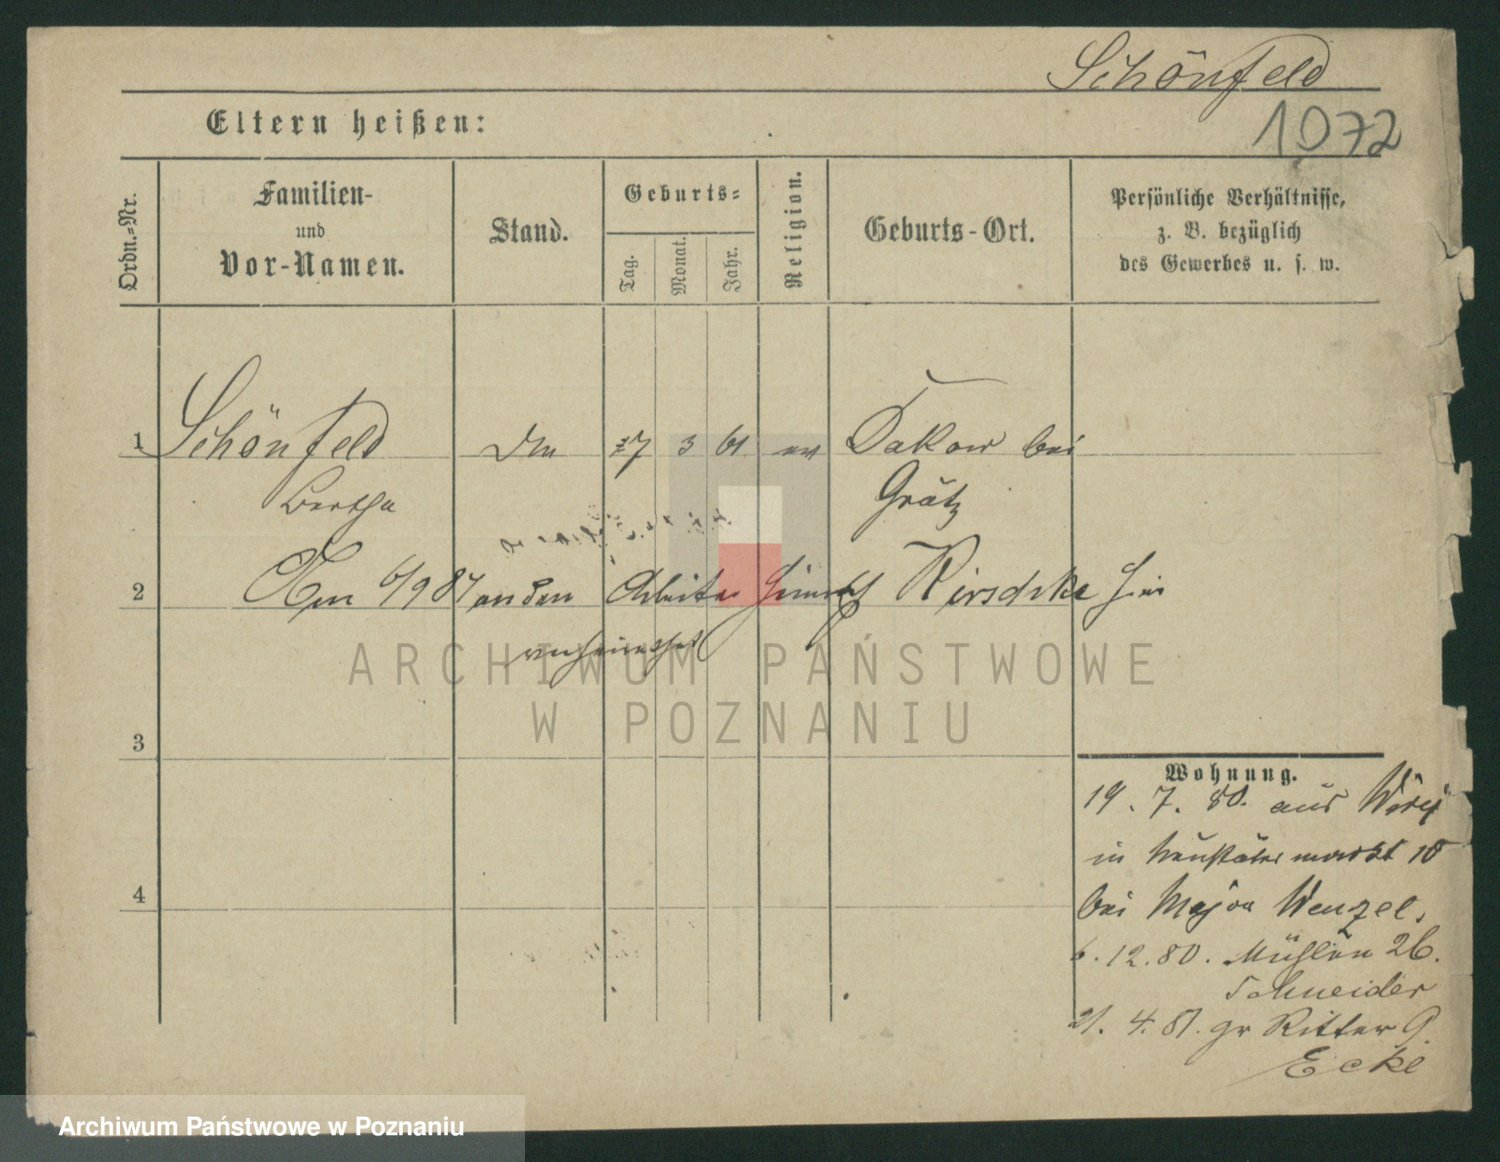 Schönfeld
1072
Eltern heißen:
Ordn.-Nr.
Familien-
und
Vor-Namen.
Stand.
Geburts-
Tag.
Monat.
Jahr.
Religion.
Geburts-Ort.
Persönliche Verhältnisse,
z. B. bezüglich
des Gewerbes u. s. w.
1 Schönfeld 27 3 61 ev Dakow bei
Bertha Grätz
2 Am 6/9 87 an den Arbeiter Heinrich Kirschke hier
verheirathet
ARCHIWUM PAŃSTWOWE
W POZNANIU
3
Wohnung.
19. 7. 80. aus
in Neustädter markt 10
4
bei Major Wenzel.
6. 12. 80. Mühlen 26.
Schneider
21. 4. 81. gr Ritter 9.
Ecke
Archiwum Państwowe w Poznaniu